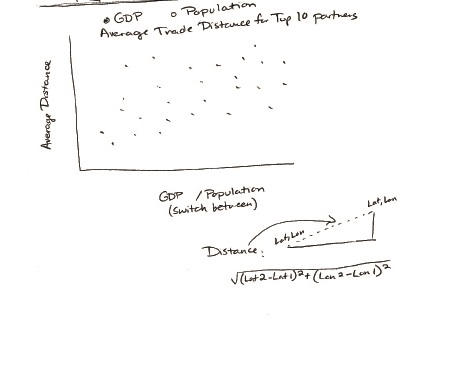 GDP Population
Average Trade Distance for Top 10 partners
Average Distance
GDP / Population
(Switch between)
Lat, Lon
Lat, Lon
Distance:
√(Lat2-Lat1)²+(Lon2-Lon1)²